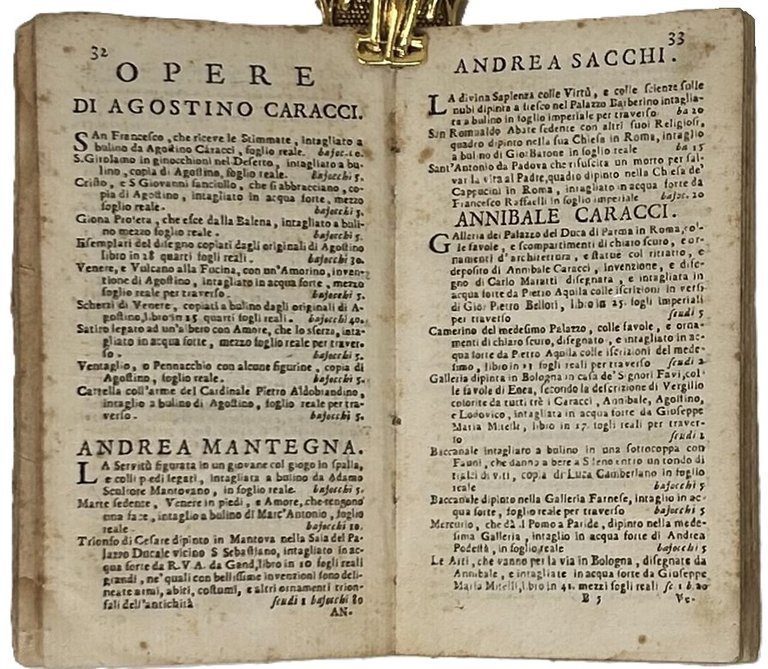 32
OPERE
DI AGOSTINO CARACCI.
SAn Francesco, che riceve le Stimmate, intagliato a
bulino da Agostino Caracci, foglio reale. bajoc. 10.
S. Girolamo in ginocchioni nel Deserto, intagliato a bu-
lino, copia di Agostino, foglio reale. bajocchi 5.
Cristo, e S Giovanni fanciullo, che si abbracciano, co-
pia di Agostino, intagliato in acqua forte, mezzo
foglio reale. bajocchi 5.
Giona Profeta, che esce dalla Balena, intagliato a buli-
no mezzo foglio reale. bajocchi 5.
Esemplari del disegno copiati dagli originali di Agostino
libro in 28 quarti fogli reali. bajocchi 30.
Venere, e Vulcano alla Fucina, con un'Amorino, inven-
zione di Agostino, intagliato in acqua forte, mezzo
foglio reale per traverso. bajocchi 5.
Scherzi di Venere, copiati a bulino dagli originali di A-
gostino, libro in 15 quarti fogli reali. bajocchi 40.
Satiro legato ad un'albero con Amore, che lo sferza, inta-
gliato in acqua forte, mezzo foglio reale per traver-
so. bajocchi 5.
Ventaglio, o Pennacchio con alcune figurine, copia di
Agostino, foglio reale. bajocchi 5.
Cartella coll'arme del Cardinale Pietro Aldobrandino,
intaglio a bulino di Agostino, foglio reale per tra-
verso. bajocchi 5.
ANDREA MANTEGNA.
LA Servitù figurata in un giovane col giogo in spalla,
e colli piedi legati, intagliata a bulino da Adamo
Scultore Mantovano, in foglio reale. bajocchi 5.
Marte sedente, Venere in piedi, e Amore, che tengono
una face, intaglio a bulino di Marc'Antonio, foglio
reale. bajocchi 10.
Trionfo di Cesare dipinto in Mantova nella Sala del Pa-
lazzo Ducale vicino S Sebastiano, intagliato in ac-
qua forte da R. V. A. da Gand, libro in 10 fogli reali
grandi, ne' quali con bellissime invenzioni sono deli-
neate armi, abiti, costumi, e altri ornamenti trion-
fali dell'antichità scudi 1 bajocchi 80
AN-
33
ANDREA SACCHI.
LA divina Sapienza colle Virtù, e colle scienze sulle
nubi dipinta a fresco nel Palazzo Barberino intaglia-
ta a bulino in foglio imperiale per traverso ba 20
San Romualdo Abate sedente con altri suoi Religiosi,
quadro dipinto nella sua Chiesa in Roma, intaglio
a bulino di Gio: Barone in foglio reale ba 15
Sant'Antonio da Padova che risuscita un morto per sal-
var la vita al Padre, quadro dipinto nella Chiesa de'
Cappucini in Roma, intagliato in acqua forte da
Francesco Raffaelli in foglio imperiale bajoc. 20
ANNIBALE CARACCI.
GAlleria del Palazzo del Duca di Parma in Roma, col-
le favole, e scompartimenti di chiaro scuro, e or-
namenti d'architettura, e statue col ritratto, e
deposito di Annibale Caracci, invenzione, e dise-
gno di Carlo Maratti disegnata, e intagliata in
acqua forte da Pietro Aquila colle iscrizioni in versi
di Gio: Pietro Bellori, libro in 25. fogli imperiali
per traverso scudi 5
Camerino del medesimo Palazzo, colle favole, e orna-
menti di chiaro scuro, disegnato, e intagliato in ac-
qua forte da Pietro Aquila colle iscrizioni del mede-
simo, libro in 13 fogli reali per traverso scudi 2
Galleria dipinta in Bologna in casa de' Signori Favi, col-
le favole di Enea, secondo la descrizione di Vergilio
colorite da tutti trè i Caracci, Annibale, Agostino,
e Lodovico, intagliata in acqua forte da Giuseppe
Maria Mitelli, libro in 17. fogli reali per traver-
so scudi 1
Baccanale intagliato a bulino in una sottocoppa con
Fauni, che danno a bere a Sileno entro un tondo di
tralci di viti, copia di Luca Camberlano in foglio
reale bajocchi 5
Baccanale dipinto nella Galleria Farnese, intaglio in ac-
qua forte, foglio reale per traverso bajocchi 5
Mercurio, che dà il Pomo a Paride, dipinto nella mede-
sima Galleria, intaglio in acqua forte di Andrea
Podestà, in foglio reale bajocchi 5
Le Arti, che vanno per la via in Bologna, disegnate da
Annibale, e intagliate in acqua forte da Giuseppe
Maria Mitelli, libro in 41. mezzi fogli reali sc. 1 b. 20
B 5 Ve-